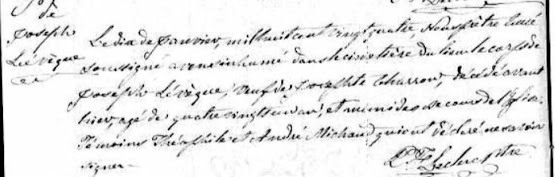 de
Joseph
Lévêque
Le dix de Janvier, mil huit cent vingt quatre, Nous prêtre Curé
soussigné avons inhumé dans le cimetière du lieu le corps de
Joseph Lévêque, veuf de Josephte Charron, décédé avant
hier, agé de quatre vingt un an, et muni des secours de l'Eglise.
Témoins Théophile et André Michaud qui ont déclaré ne savoir
signer.
Ptre